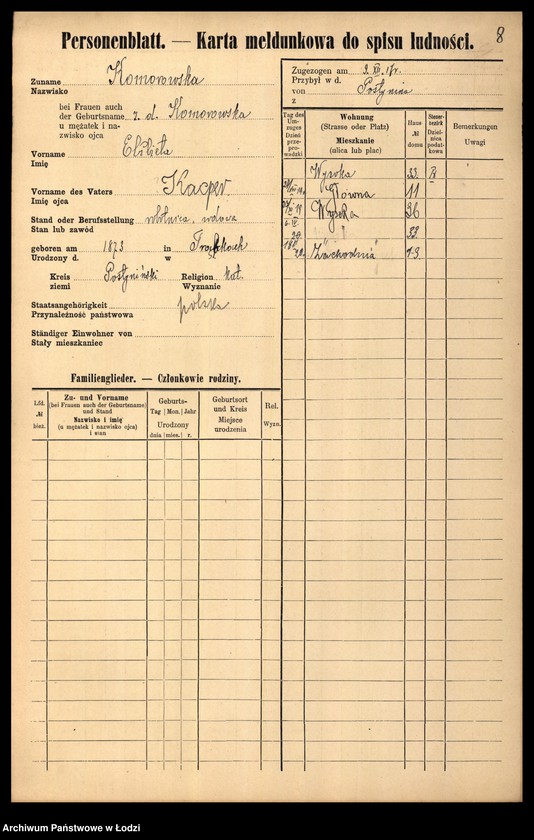 Personenblatt. — Karta meldunkowa do spisu ludności.
8
Zuname Komorowska
Nazwisko
bei Frauen auch
der Geburtsname z. d. Komorowska
u mężatek i na-
zwisko ojca
Vorname Elżbieta
Imię
Vorname des Vaters Kacper
Imię ojca
Stand oder Berufsstellung robotnica, wdowa
Stan lub zawód
geboren am 1873 in
Urodzony d. w
Kreis Gostyniński Religion kat.
ziemi Wyznanie
Staatsangehörigkeit polska
Przynależność państwowa
Ständiger Einwohner von
Stały mieszkaniec
Zugezogen am
Przybył w d.
von Gostynina
z
Tag des Um-
zuges
Dzień
prze-
prowadzki
Wohnung
(Strasse oder Platz)
Mieszkanie
(ulica lub plac)
Haus
№
domu
Steuer-
bezirk
Dziel-
nica
podat-
kowa
Bemerkungen
Uwagi
Wysoka 33. IV
Główna 11
Wysoka 36
20. 32
Zachodnia 73
Familienglieder. — Członkowie rodziny.
Lfd.
№
bież.
Zu- und Vorname
(bei Frauen auch der Geburtsname)
und Stand
Nazwisko i imię
(u mężatek i nazwisko ojca)
i stan
Geburts-
Tag | Mon. | Jahr
Urodzony
dnia | mies. | r.
Geburtsort
und Kreis
Miejsce
urodzenia
Rel.
Wyzn.
Archiwum Państwowe w Łodzi